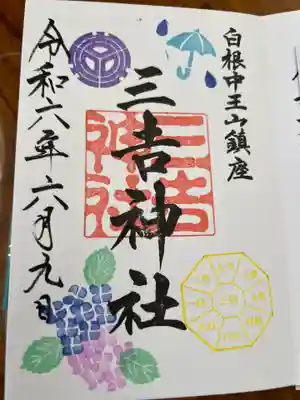 白根中王山鎮座
三吉神社
三吉神社
令和六年六月九日